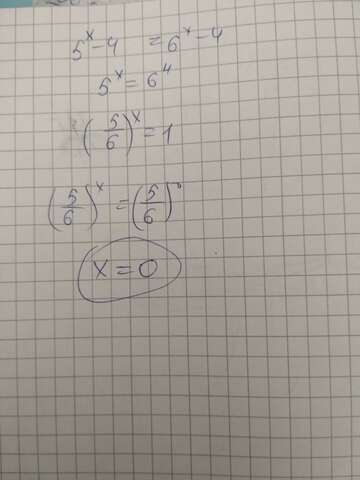 5^x - 4 = 6^x - 4
5^x = 6^4
(5/6)^x = 1
(5/6)^x = (5/6)^0
x = 0